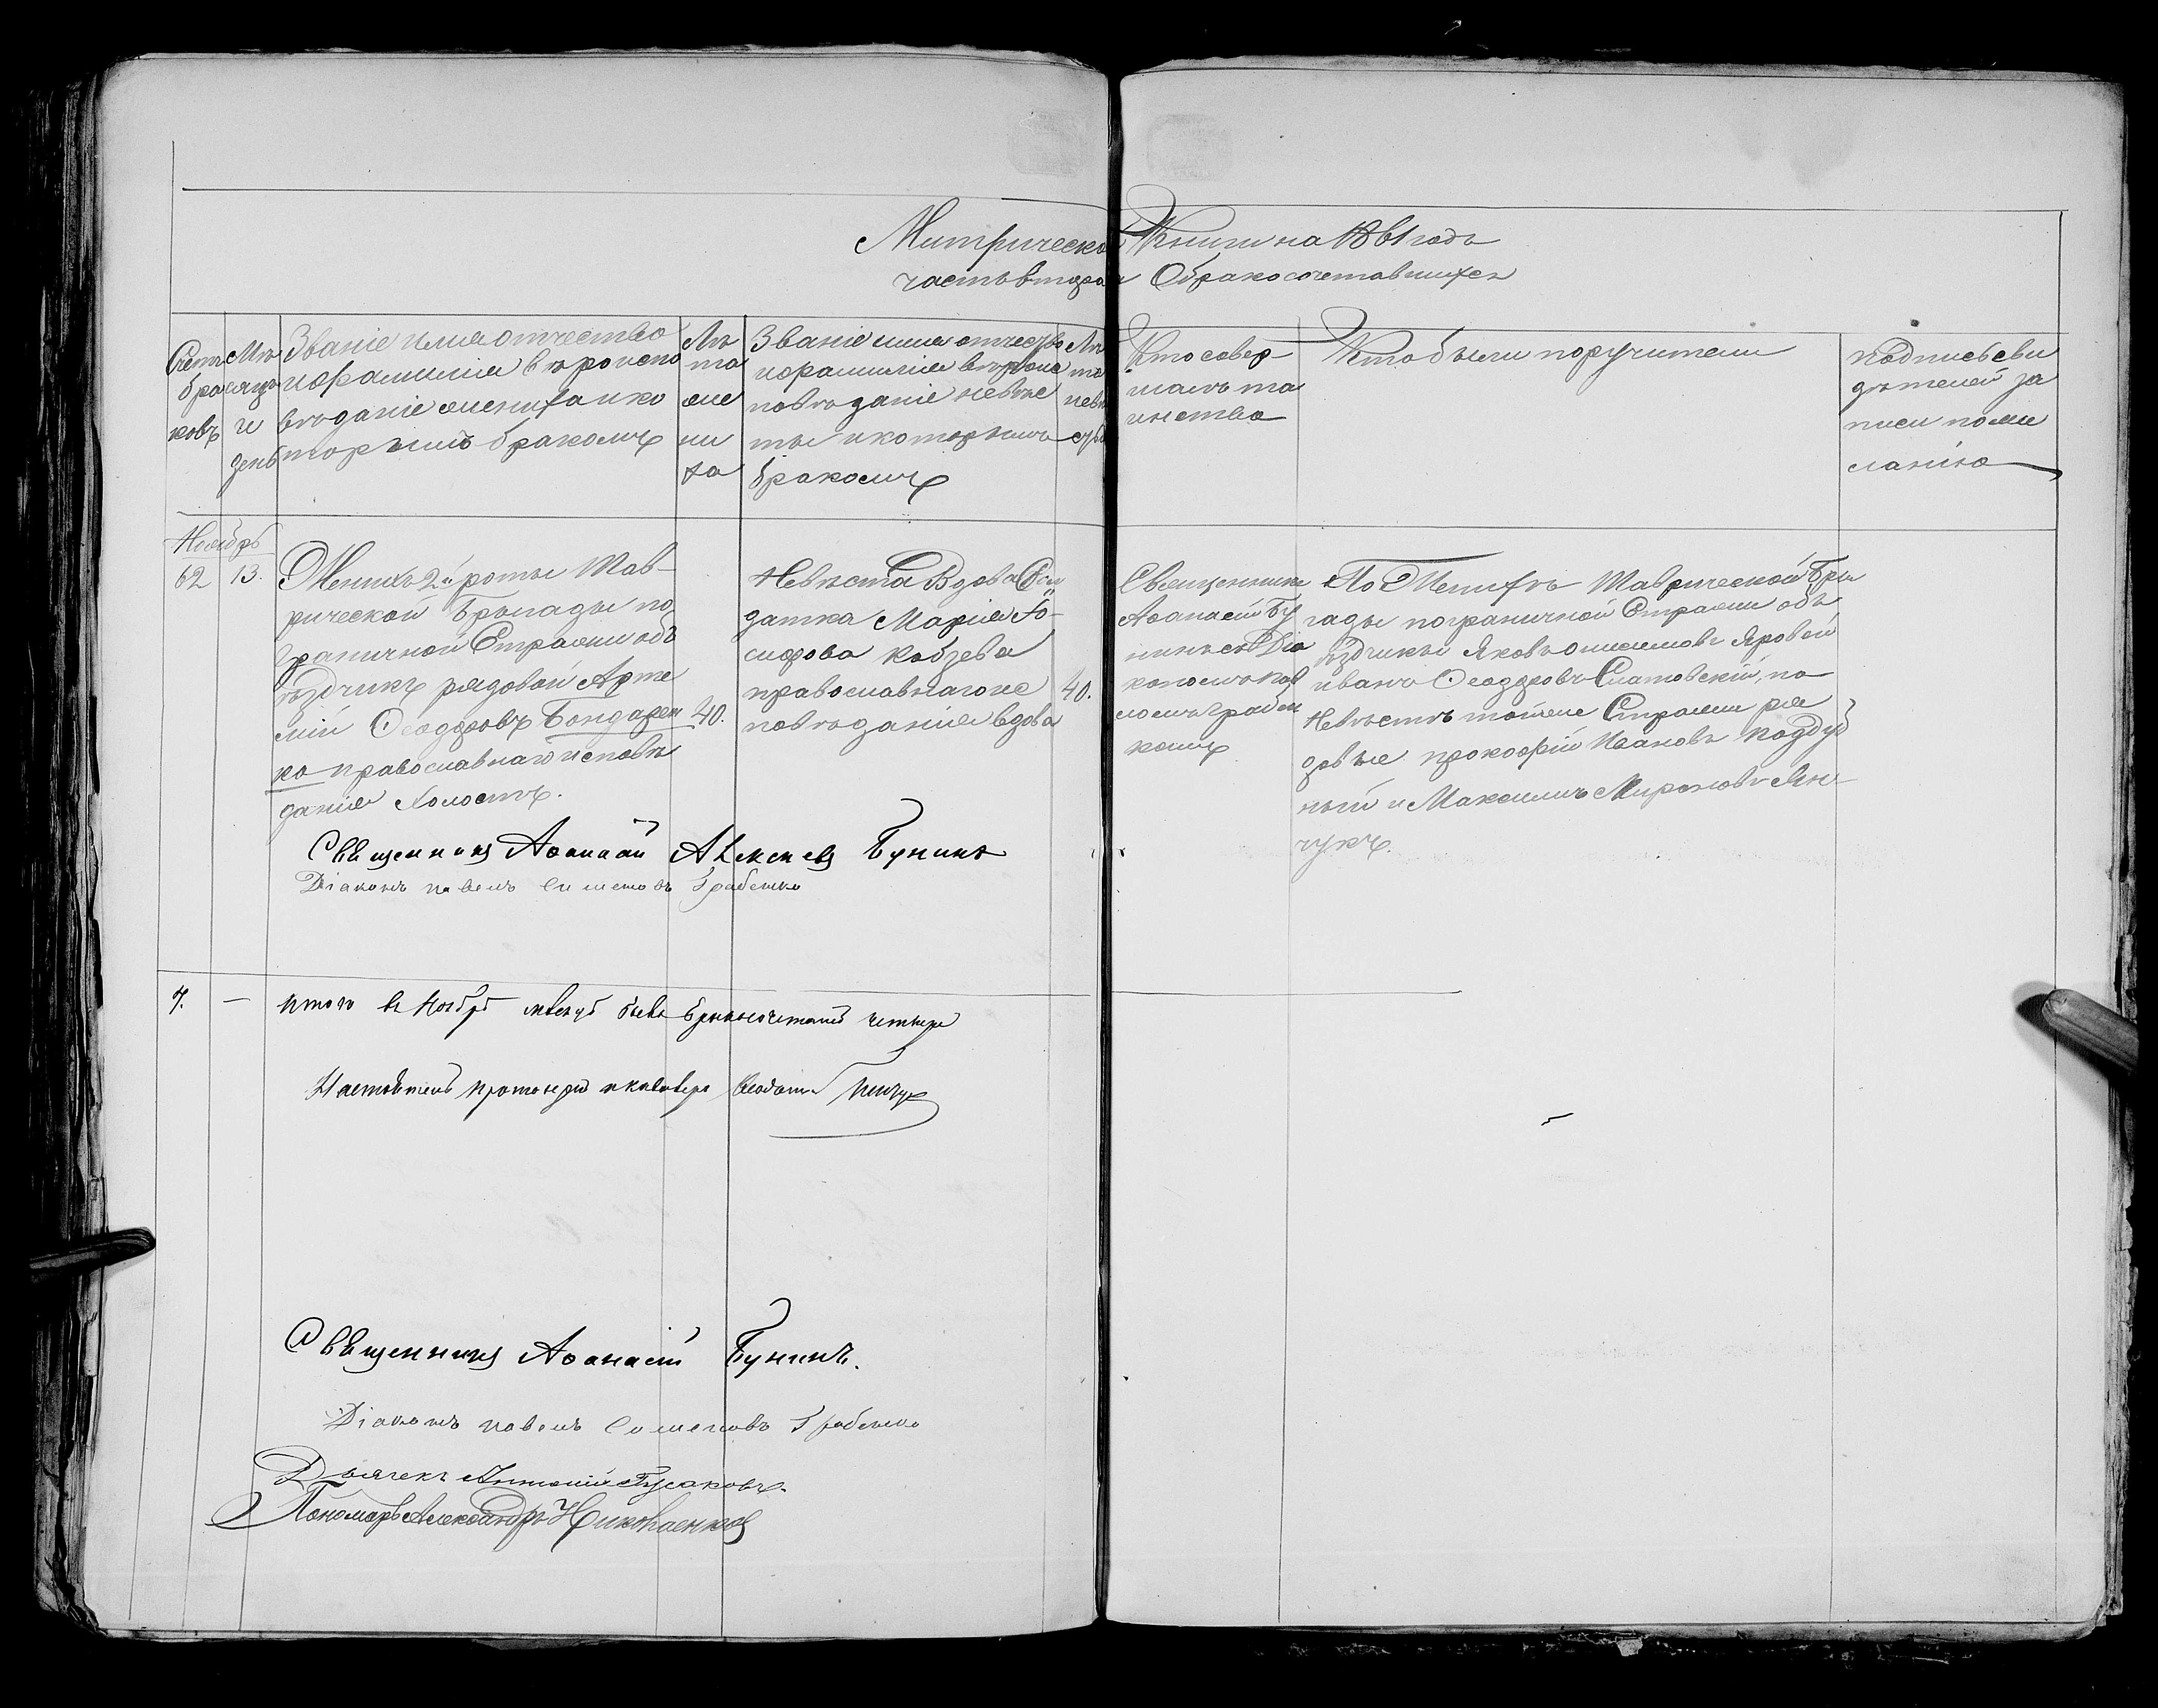 Метрической Книги на 1861 годъ
часть вторая О бракосочетавшихся
Счетъ браковъ
Мѣсяцъ и день
Званіе имя отчество
и фамилія вѣроиспо
вѣданіе жениха и ко
торымъ бракомъ
Лѣ
та
же
ни
ха
Званіе имя отчество
и фамилія вѣроис
повѣданіе невѣс
ты и которымъ
бракомъ
Лѣ
та
невѣ
сты
Кто совер-
шалъ та
инство
Кто были поручители
Подпись сви
дѣтелей за
писи по же
ланію
Ноябрь
62 13.
Женихъ 2й роты Тав-
рической Брыгады по
граничной Стражи объ
ѣздчикъ рядовой Арте
мій Ѳеодоровъ Бондарен
ко православнаго исповѣ
данія холостъ.
40.
Невѣста Вдова Сол
датка Марія Іо-
сифова Кобзева
православнаго ис
повѣданія вдова
40.
Священникъ
Аѳанасій Бу
нинъ съ Діа
кономъ Пав
ломъ Грабен
комъ
По Женихѣ Таврической Бры
гады пограничной Стражи объ
ѣздчики Яковъ Онисимовъ Яровой
иванъ Ѳеодоровъ Слатовскій, по
Невѣстѣ тойже Стражи ря
довые прокофій Ивановъ Поддуб
ный и Максимъ Мироновъ Ян-
чукъ.
Священникъ Аѳанасій Алексѣевъ Бунинъ
Діаконъ павелъ Симеоновъ Грабенко
4. — Итого въ Ноябрѣ мѣсяцѣ было бракосочетаній четыре
Настоятель протоіерей и кавалеръ
Священникъ Аѳанасій Бунинъ.
Діаконъ павелъ Симеоновъ Грабенко
Дьячекъ Антоній Гусаковъ.
Пономарь Александръ Николаенковъ